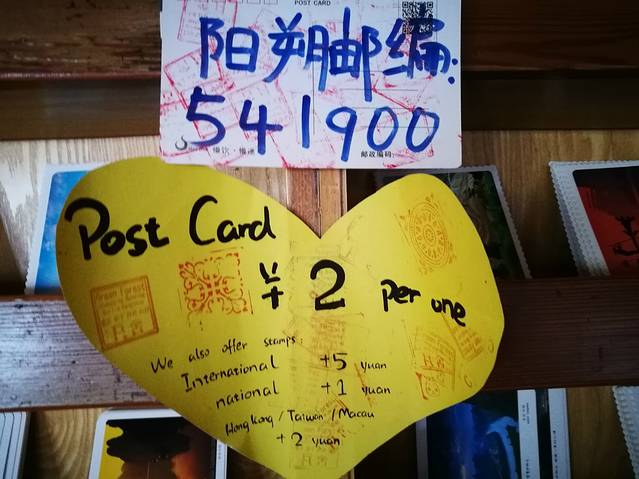 POST CARD
阳朔邮编:
541900
慢饮·慢递
邮政编码:
Post Card
¥ 2 per one
We also offer stamps:
International +5 yuan
national +1 yuan
HongKong/Taiwan/Macau
+2 yuan